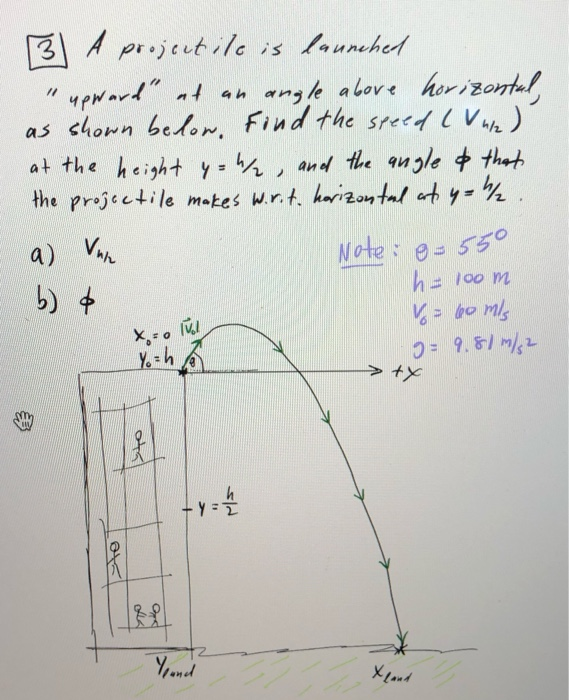 3 A projectile is launched
"upward" at an angle above horizontal,
as shown below. Find the speed (Vh/2)
at the height y = h/2, and the angle ϕ that
the projectile makes w.r.t. horizontal at y = h/2.
a) Vh/2
b) ϕ
Note: θ = 55°
h = 100 m
V₀ = 60 m/s
g = 9.81 m/s²
X₀ = 0 |V₀|
Y₀ = h θ
+X
y = h/2
Yland
Xland